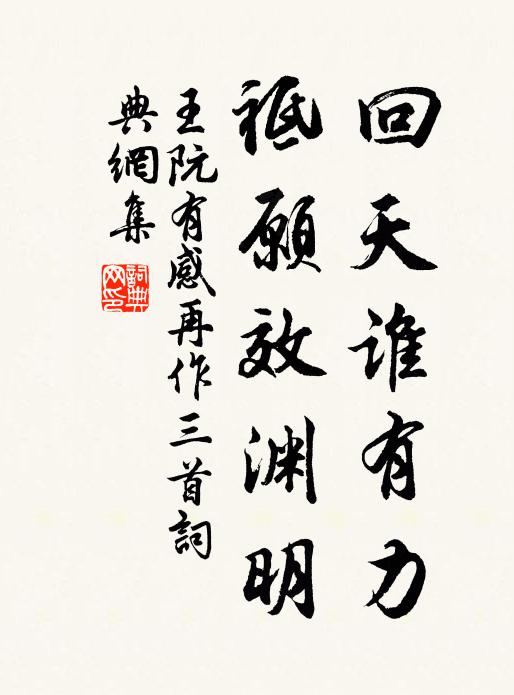 回天谁有力
祗愿效渊明
王阮有感再作三首詞
典網集
詞典
网印